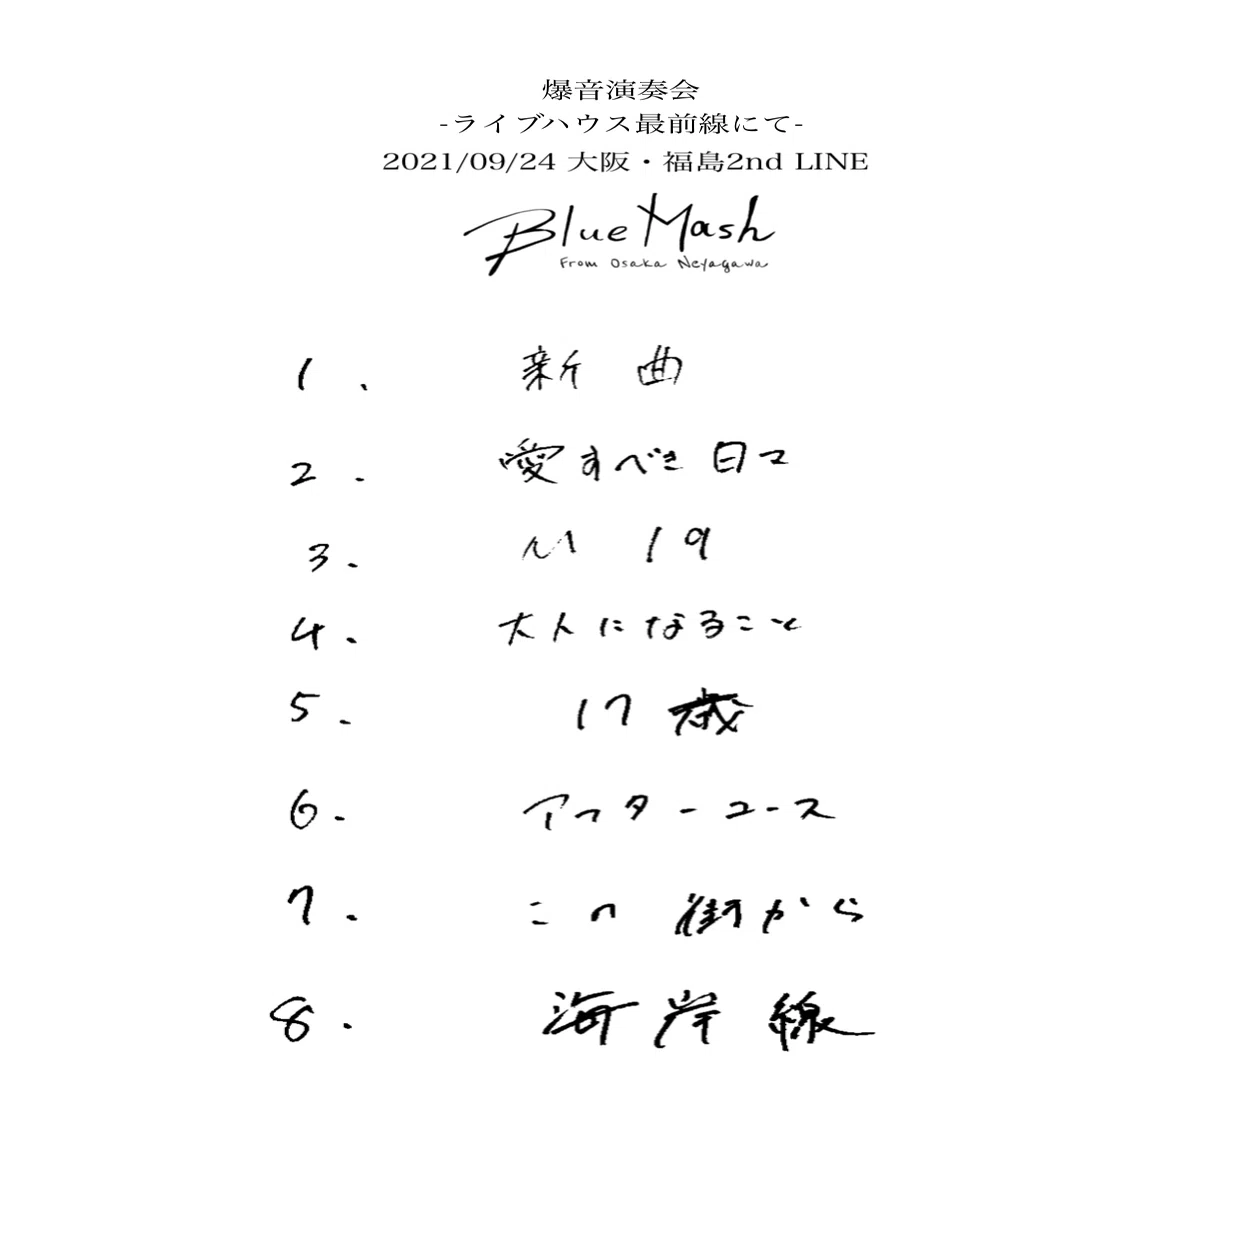 爆音演奏会
-ライブハウス最前線にて-
2021/09/24 大阪・福島2nd LINE
Blue Mash
From Osaka Neyagawa
1. 新曲
2. 愛すべき日々
3. M 19
4. 大人になること
5. 17歳
6. アフターユース
7. この街から
8. 海岸線